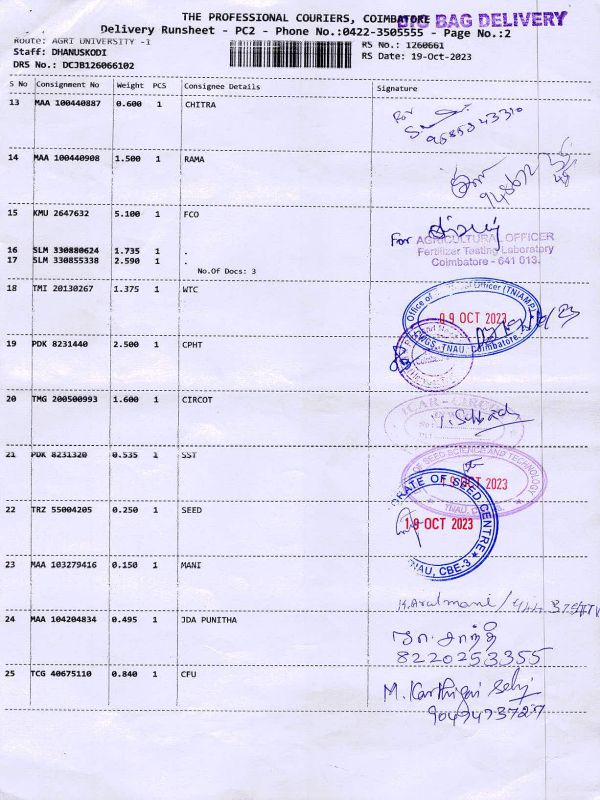 THE PROFESSIONAL COURIERS, COIMBATORE
BIG BAG DELIVERY
Delivery Runsheet - PC2 - Phone No.:0422-3505555 - Page No.:2
Route: AGRI UNIVERSITY -I
RS No.: 1260661
Staff: DHANUSKODI
RS Date: 19-Oct-2023
DRS No.: DCJB126066102
S No Consignment No Weight PCS Consignee Details Signature
13 MAA 100440887 0.600 1 CHITRA
For
14 MAA 100440908 1.500 1 RAMA
15 KMU 2647632 5.100 1 FCO
For AGRICULTURAL OFFICER
Fertilizer Testing Laboratory
Coimbatore - 641 013.
16 SLM 330880624 1.735 1 .
17 SLM 330855338 2.590 1 .
No.Of Docs: 3
18 TMI 20130267 1.375 1 WTC
Office of Officer (TNIAMP)
09 OCT 2023
CWGS, TNAU, Coimbatore
19 PDK 8231440 2.500 1 CPHT
20 TMG 200500993 1.600 1 CIRCOT
ICAR-CIRCOT
21 PDK 8231320 0.535 1 SST
OF SEED SCIENCE AND TECHNOLOGY
19 OCT 2023
22 TRZ 55004205 0.250 1 SEED
ORATE OF SEED CENTRE
19 OCT 2023
TNAU, CBE-3
23 MAA 103279416 0.150 1 MANI
24 MAA 104204834 0.495 1 JDA PUNITHA
8220253355
25 TCG 40675110 0.840 1 CFU
M. Karthigai Selvi
9047473727